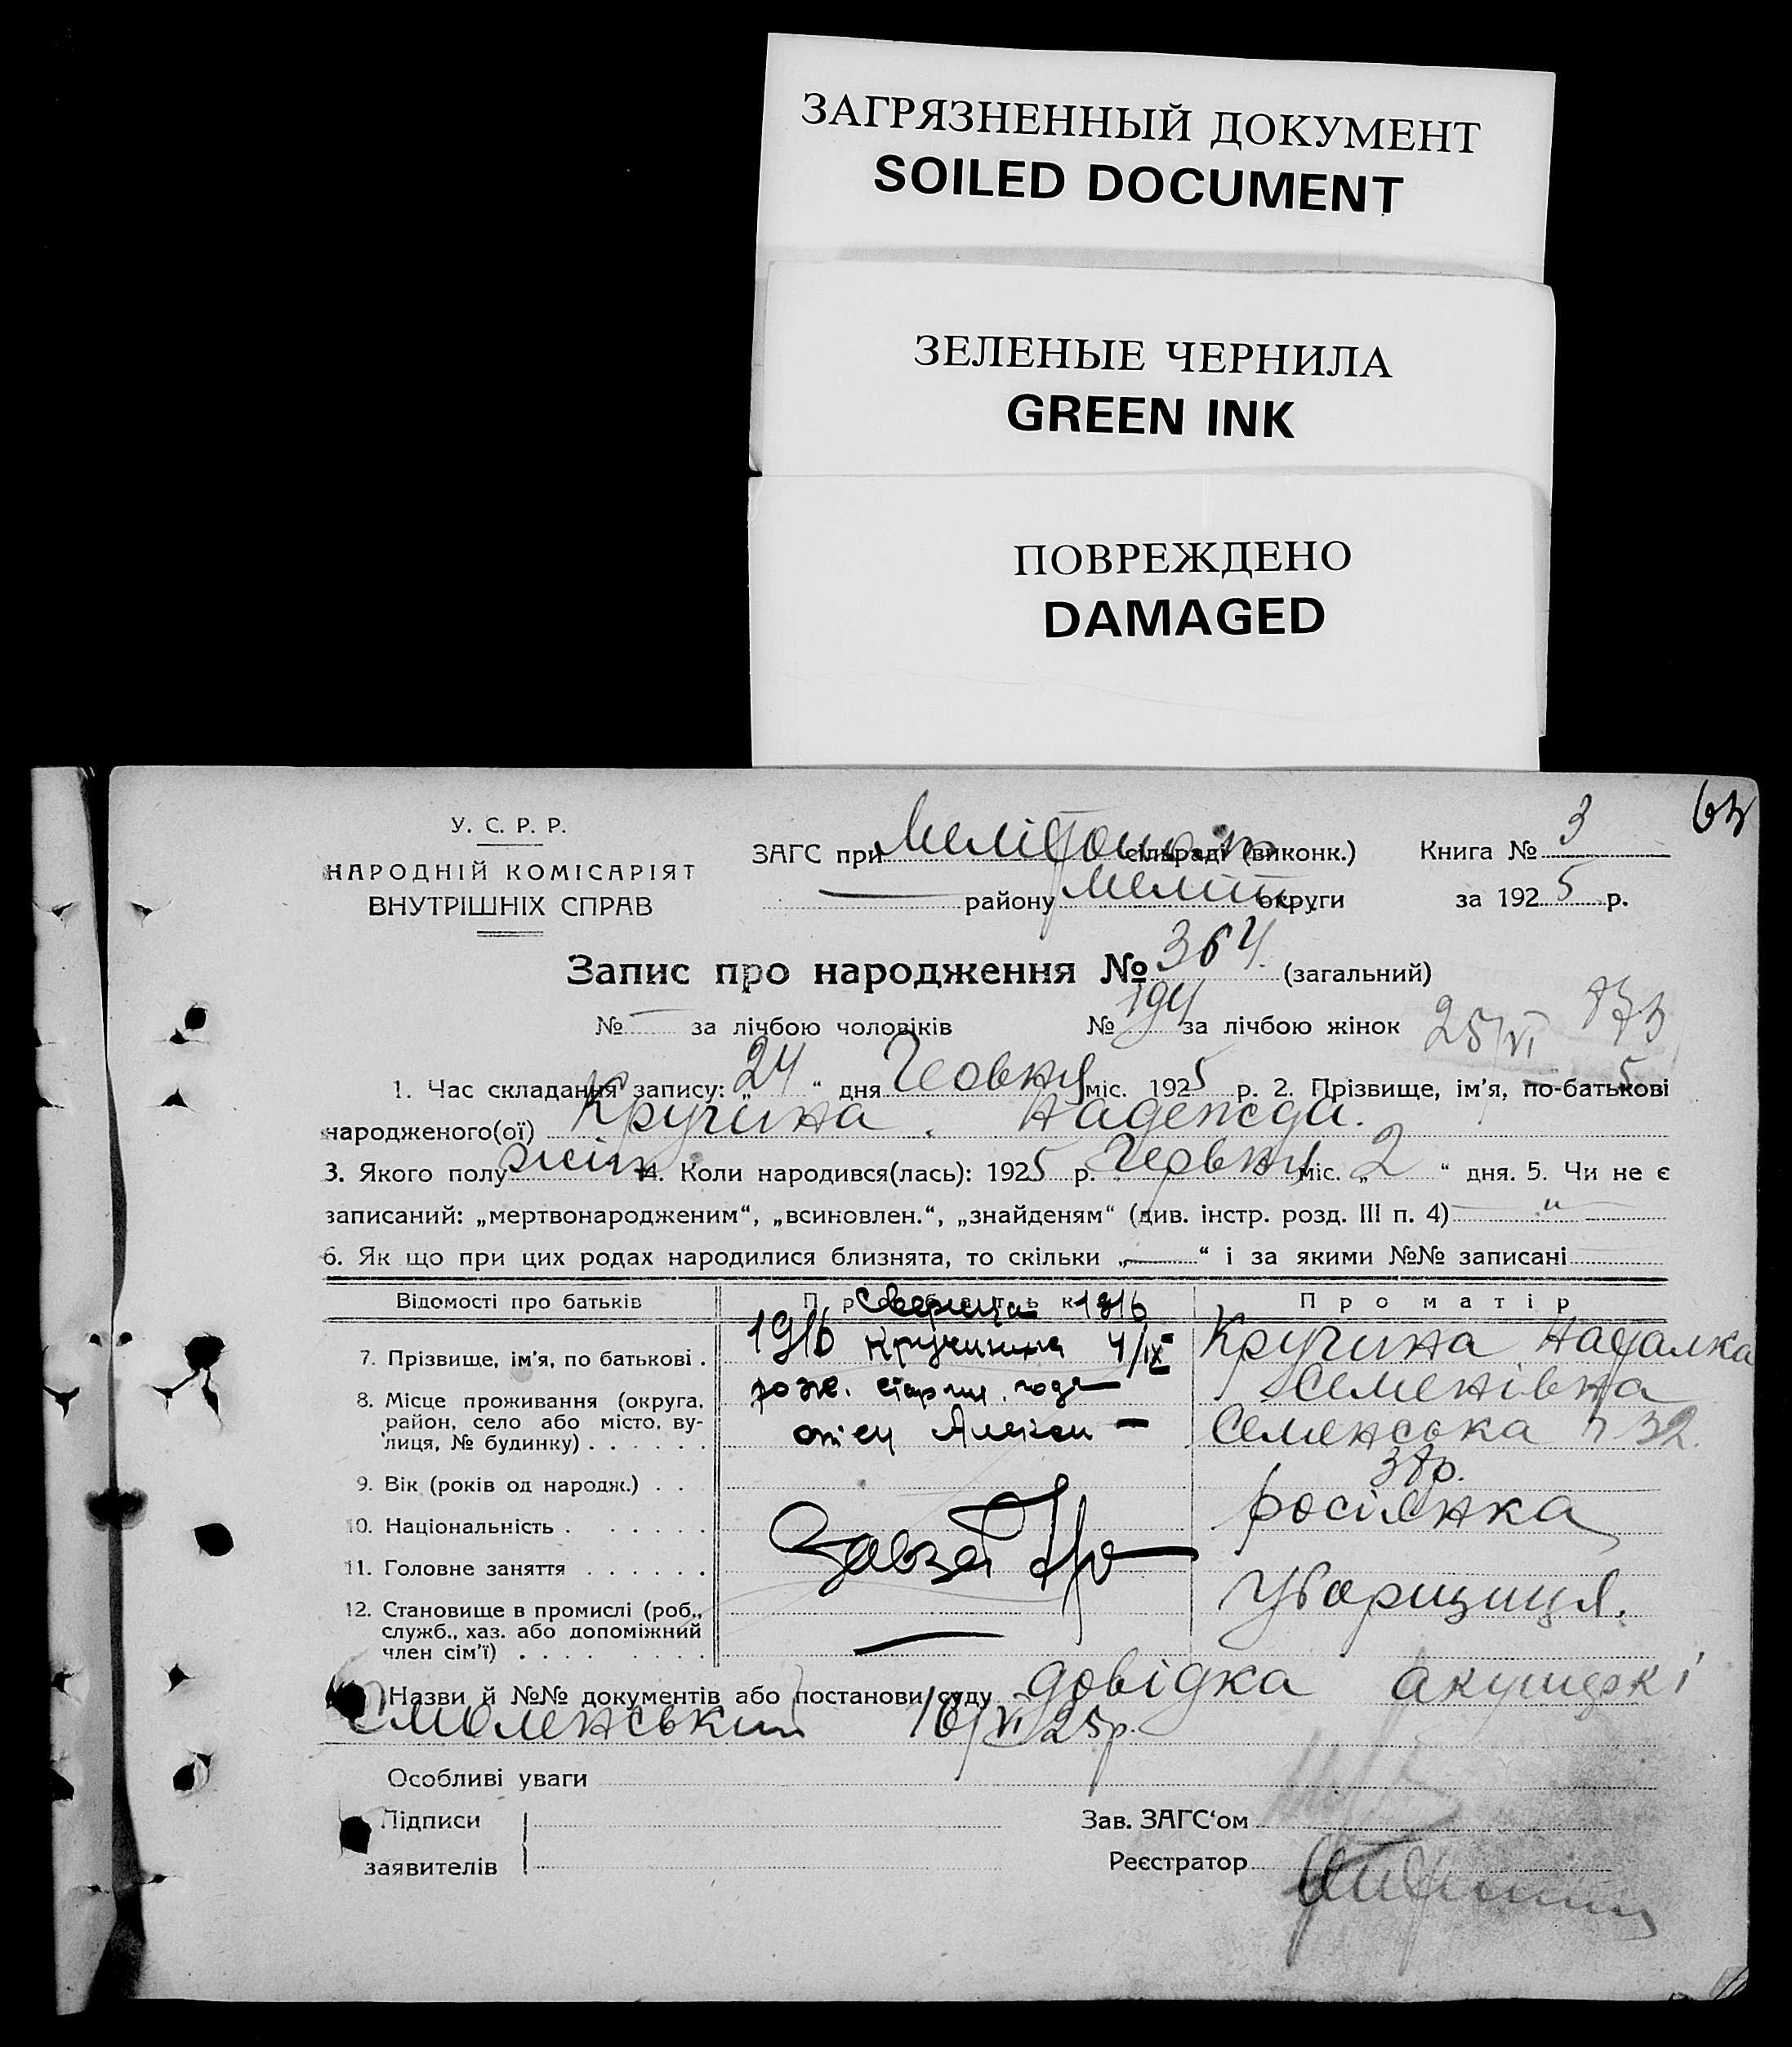 ЗАГРЯЗНЕННЫЙ ДОКУМЕНТ
SOILED DOCUMENT
ЗЕЛЕНЫЕ ЧЕРНИЛА
GREEN INK
ПОВРЕЖДЕНО
DAMAGED
У. С. Р. Р.
НАРОДНІЙ КОМІСАРІЯТ
ВНУТРІШНІХ СПРАВ
ЗАГС при сільраді (виконк.) Книга № 3
району Меліт округи за 1925 р.
Запис про народження № 364 (загальний)
№ — за лічбою чоловіків № 194 за лічбою жінок 25/VI
1. Час складання запису: „24“ дня Червня міс. 1925 р. 2. Прізвище, ім'я, по-батькові
народженого(ої) Кручина Надежда.
3. Якого полу жін 4. Коли народився(лась): 1925 р. Червня міс. „2“ дня. 5. Чи не є
записаний: „мертвонародженим“, „всиновлен.“, „знайденям“ (див. інстр. розд. III п. 4)
6. Як що при цих родах народилися близнята, то скільки „—“ і за якими №№ записані
Відомості про батьків
Про батька
Про матір
7. Прізвище, ім'я, по батькові .
8. Місце проживання (округа,
район, село або місто, ву-
лиця, № будинку) . . . . . .
9. Вік (років од народж.) . .
10. Національність . . . . . .
11. Головне заняття . . . . . .
12. Становище в промислі (роб.,
служб., хаз. або допоміжний
член сім'ї) . . . . . . . .
1916
1916 4/IX
рож. года
отец
Кручина Наталка
Семенівна
32.
росіянка
Назви й №№ документів або постанови суду довідка акушерки
Смоленський 16/VI 25р.
Особливі уваги
Підписи
заявителів
Зав. ЗАГС'ом
Реєстратор